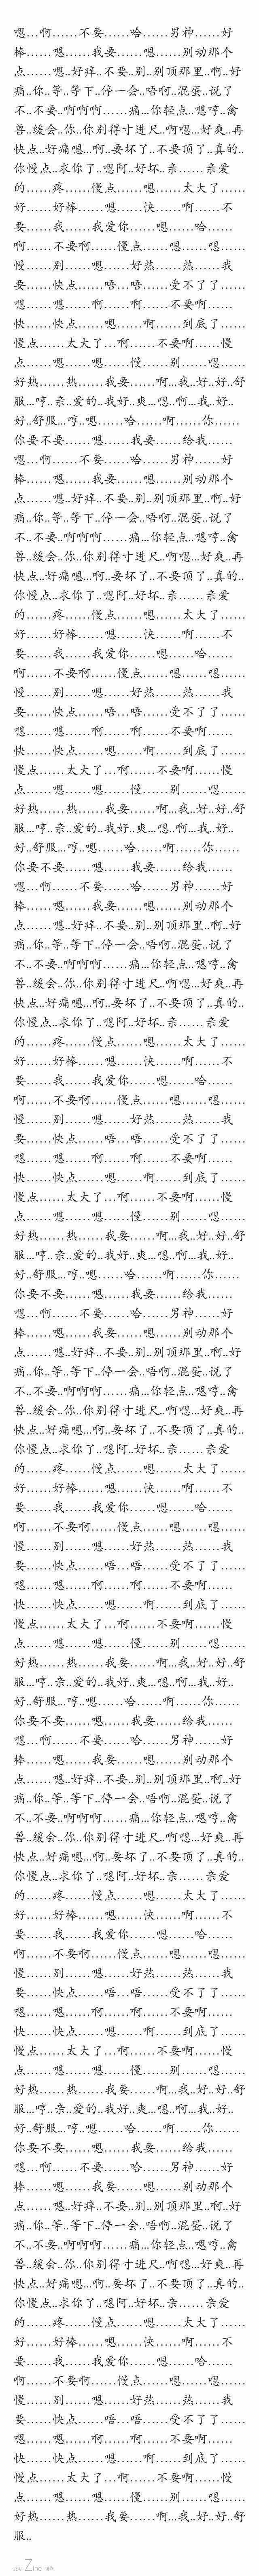 嗯...啊......不要......哈......男神......好
棒......嗯......我要......嗯......别动那个
点......嗯..好痒..不要..别..别顶那里..啊..好
痛..你..等..等下..停一会..唔啊..混蛋..说了
不..不要..啊啊啊......痛...你轻点..嗯哼..禽
兽..缓会..你..你别得寸进尺..啊嗯...好爽..再
快点..好痛嗯...啊..要坏了..不要顶了..真的..
你慢点..求你了..嗯阿..好坏..亲......亲爱
的......疼......慢点......嗯......太大了......
好......好棒......嗯......快......啊......不
要......我......我爱你......嗯......哈......
啊......不要啊......慢点......嗯......嗯......
慢......别......嗯......好热......热......我
要......快点......唔...唔......受不了了......
嗯......嗯......啊......啊......不要啊......
快......快点......嗯......啊......到底了......
慢点......太大了...啊......不要啊......慢
点......嗯......嗯......慢......别......嗯......
好热......热......我要......啊...我..好..好..舒
服...哼..亲..爱的..我好..爽...嗯..啊...我..好..
好..舒服...哼..嗯......哈......啊......你......
你要不要......嗯......我要......给我......
嗯...啊......不要......哈......男神......好
棒......嗯......我要......嗯......别动那个
点......嗯..好痒..不要..别..别顶那里..啊..好
痛..你..等..等下..停一会..唔啊..混蛋..说了
不..不要..啊啊啊......痛...你轻点..嗯哼..禽
兽..缓会..你..你别得寸进尺..啊嗯...好爽..再
快点..好痛嗯...啊..要坏了..不要顶了..真的..
你慢点..求你了..嗯阿..好坏..亲......亲爱
的......疼......慢点......嗯......太大了......
好......好棒......嗯......快......啊......不
要......我......我爱你......嗯......哈......
啊......不要啊......慢点......嗯......嗯......
慢......别......嗯......好热......热......我
要......快点......唔...唔......受不了了......
嗯......嗯......啊......啊......不要啊......
快......快点......嗯......啊......到底了......
慢点......太大了...啊......不要啊......慢
点......嗯......嗯......慢......别......嗯......
好热......热......我要......啊...我..好..好..舒
服...哼..亲..爱的..我好..爽...嗯..啊...我..好..
好..舒服...哼..嗯......哈......啊......你......
你要不要......嗯......我要......给我......
嗯...啊......不要......哈......男神......好
棒......嗯......我要......嗯......别动那个
点......嗯..好痒..不要..别..别顶那里..啊..好
痛..你..等..等下..停一会..唔啊..混蛋..说了
不..不要..啊啊啊......痛...你轻点..嗯哼..禽
兽..缓会..你..你别得寸进尺..啊嗯...好爽..再
快点..好痛嗯...啊..要坏了..不要顶了..真的..
你慢点..求你了..嗯阿..好坏..亲......亲爱
的......疼......慢点......嗯......太大了......
好......好棒......嗯......快......啊......不
要......我......我爱你......嗯......哈......
啊......不要啊......慢点......嗯......嗯......
慢......别......嗯......好热......热......我
要......快点......唔...唔......受不了了......
嗯......嗯......啊......啊......不要啊......
快......快点......嗯......啊......到底了......
慢点......太大了...啊......不要啊......慢
点......嗯......嗯......慢......别......嗯......
好热......热......我要......啊...我..好..好..舒
服...哼..亲..爱的..我好..爽...嗯..啊...我..好..
好..舒服...哼..嗯......哈......啊......你......
你要不要......嗯......我要......给我......
嗯...啊......不要......哈......男神......好
棒......嗯......我要......嗯......别动那个
点......嗯..好痒..不要..别..别顶那里..啊..好
痛..你..等..等下..停一会..唔啊..混蛋..说了
不..不要..啊啊啊......痛...你轻点..嗯哼..禽
兽..缓会..你..你别得寸进尺..啊嗯...好爽..再
快点..好痛嗯...啊..要坏了..不要顶了..真的..
你慢点..求你了..嗯阿..好坏..亲......亲爱
的......疼......慢点......嗯......太大了......
好......好棒......嗯......快......啊......不
要......我......我爱你......嗯......哈......
啊......不要啊......慢点......嗯......嗯......
慢......别......嗯......好热......热......我
要......快点......唔...唔......受不了了......
嗯......嗯......啊......啊......不要啊......
快......快点......嗯......啊......到底了......
慢点......太大了...啊......不要啊......慢
点......嗯......嗯......慢......别......嗯......
好热......热......我要......啊...我..好..好..舒
服...哼..亲..爱的..我好..爽...嗯..啊...我..好..
好..舒服...哼..嗯......哈......啊......你......
你要不要......嗯......我要......给我......
嗯...啊......不要......哈......男神......好
棒......嗯......我要......嗯......别动那个
点......嗯..好痒..不要..别..别顶那里..啊..好
痛..你..等..等下..停一会..唔啊..混蛋..说了
不..不要..啊啊啊......痛...你轻点..嗯哼..禽
兽..缓会..你..你别得寸进尺..啊嗯...好爽..再
快点..好痛嗯...啊..要坏了..不要顶了..真的..
你慢点..求你了..嗯阿..好坏..亲......亲爱
的......疼......慢点......嗯......太大了......
好......好棒......嗯......快......啊......不
要......我......我爱你......嗯......哈......
啊......不要啊......慢点......嗯......嗯......
慢......别......嗯......好热......热......我
要......快点......唔...唔......受不了了......
嗯......嗯......啊......啊......不要啊......
快......快点......嗯......啊......到底了......
慢点......太大了...啊......不要啊......慢
点......嗯......嗯......慢......别......嗯......
好热......热......我要......啊...我..好..好..舒
服...哼..亲..爱的..我好..爽...嗯..啊...我..好..
好..舒服...哼..嗯......哈......啊......你......
你要不要......嗯......我要......给我......
嗯...啊......不要......哈......男神......好
棒......嗯......我要......嗯......别动那个
点......嗯..好痒..不要..别..别顶那里..啊..好
痛..你..等..等下..停一会..唔啊..混蛋..说了
不..不要..啊啊啊......痛...你轻点..嗯哼..禽
兽..缓会..你..你别得寸进尺..啊嗯...好爽..再
快点..好痛嗯...啊..要坏了..不要顶了..真的..
你慢点..求你了..嗯阿..好坏..亲......亲爱
的......疼......慢点......嗯......太大了......
好......好棒......嗯......快......啊......不
要......我......我爱你......嗯......哈......
啊......不要啊......慢点......嗯......嗯......
慢......别......嗯......好热......热......我
要......快点......唔...唔......受不了了......
嗯......嗯......啊......啊......不要啊......
快......快点......嗯......啊......到底了......
慢点......太大了...啊......不要啊......慢
点......嗯......嗯......慢......别......嗯......
好热......热......我要......啊...我..好..好..舒
服..